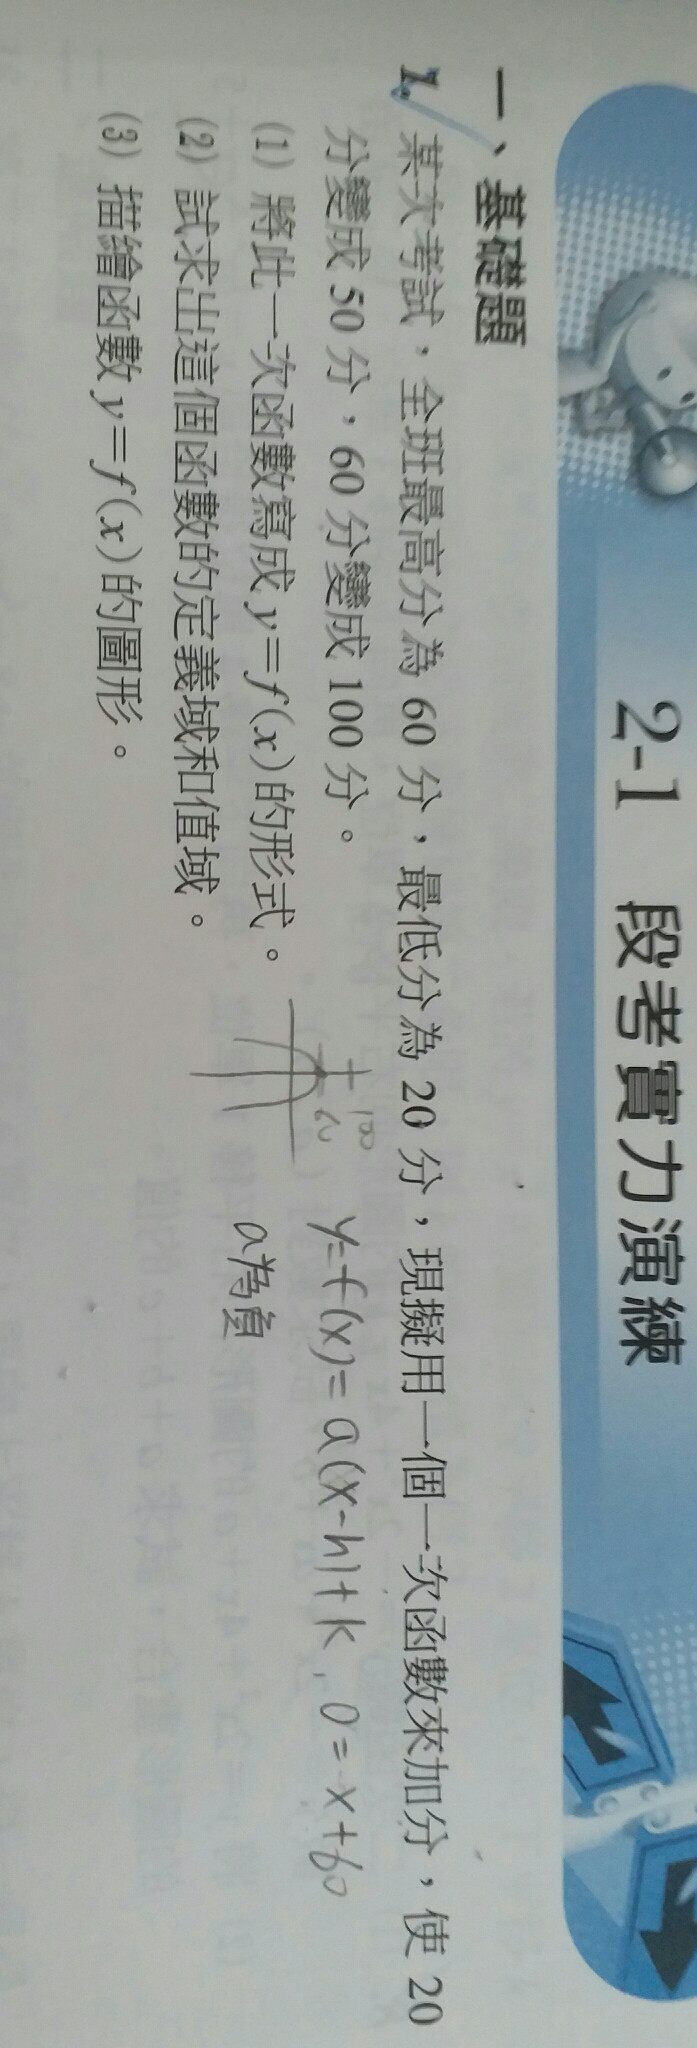 2-1 段考實力演練
一、基礎題
1. 某次考試，全班最高分為 60 分，最低分為 20 分，現擬用一個一次函數來加分，使 20
分變成 50 分，60 分變成 100 分。
(1) 將此一次函數寫成 y=f(x) 的形式。
(2) 試求出這個函數的定義域和值域。
(3) 描繪函數 y=f(x) 的圖形。
100
y=f(x)=a(x-h)+k, 0=x+60
a為負